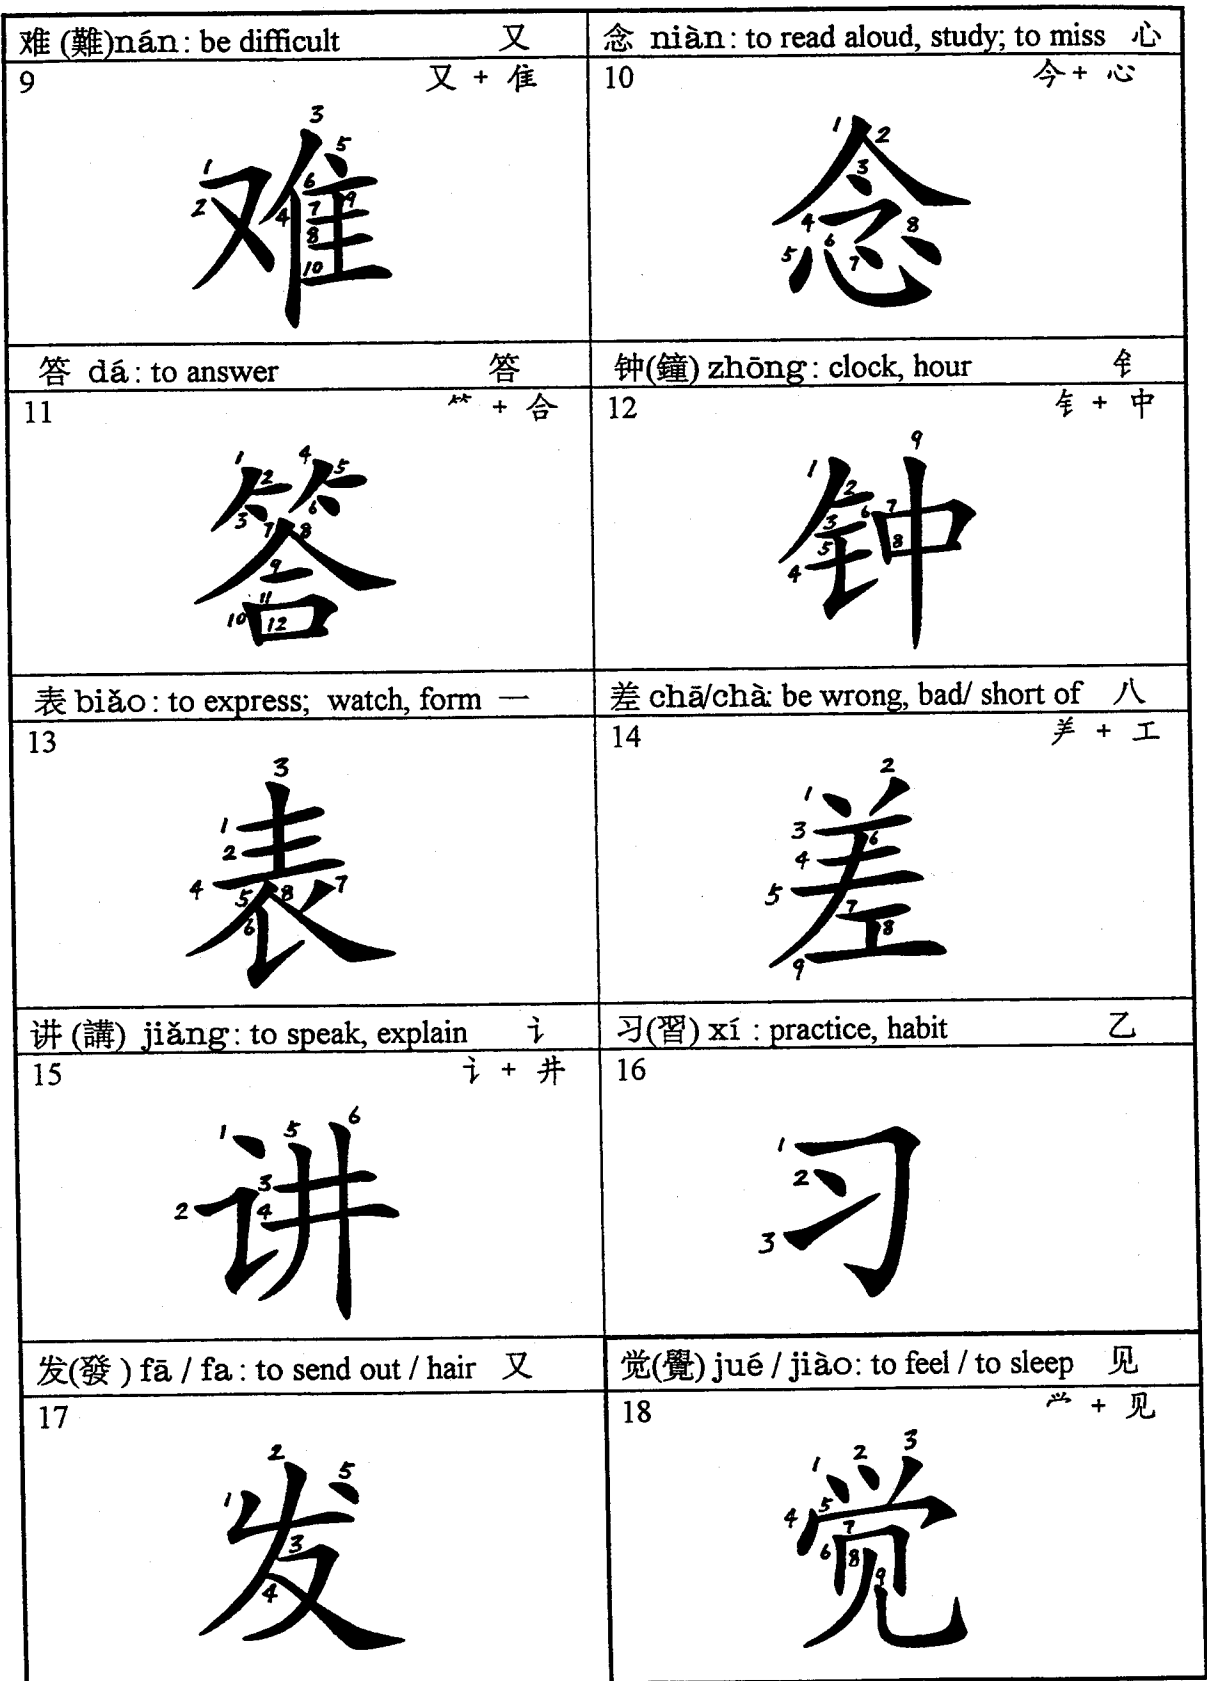 难 (難)nán: be difficult 又
9 又 + 隹
3
5
1
6
2
4
7
9
8
10
念 niàn: to read aloud, study; to miss 心
10 今+ 心
1
2
3
4
8
6
5
7
答 dá: to answer 答
11 ⺮ + 合
1
4
2
5
3
6
7
8
9
11
10
12
钟(鐘) zhōng: clock, hour 钅
12 钅 + 中
9
1
2
7
6
3
5
8
4
表 biǎo: to express; watch, form 一
13
3
1
2
4
5
8
7
6
差 chā/chà: be wrong, bad/ short of 八
14 𦍌 + 工
2
1
3
6
4
5
7
8
9
讲 (講) jiǎng: to speak, explain 讠
15 讠 + 井
6
1
5
3
2
4
习(習) xí : practice, habit 乙
16
1
2
3
发(發 ) fā / fa: to send out / hair 又
17
2
5
1
3
4
觉(覺) jué / jiào: to feel / to sleep 见
18 ⺍冖 + 见
3
2
1
5
4
7
6
8
9